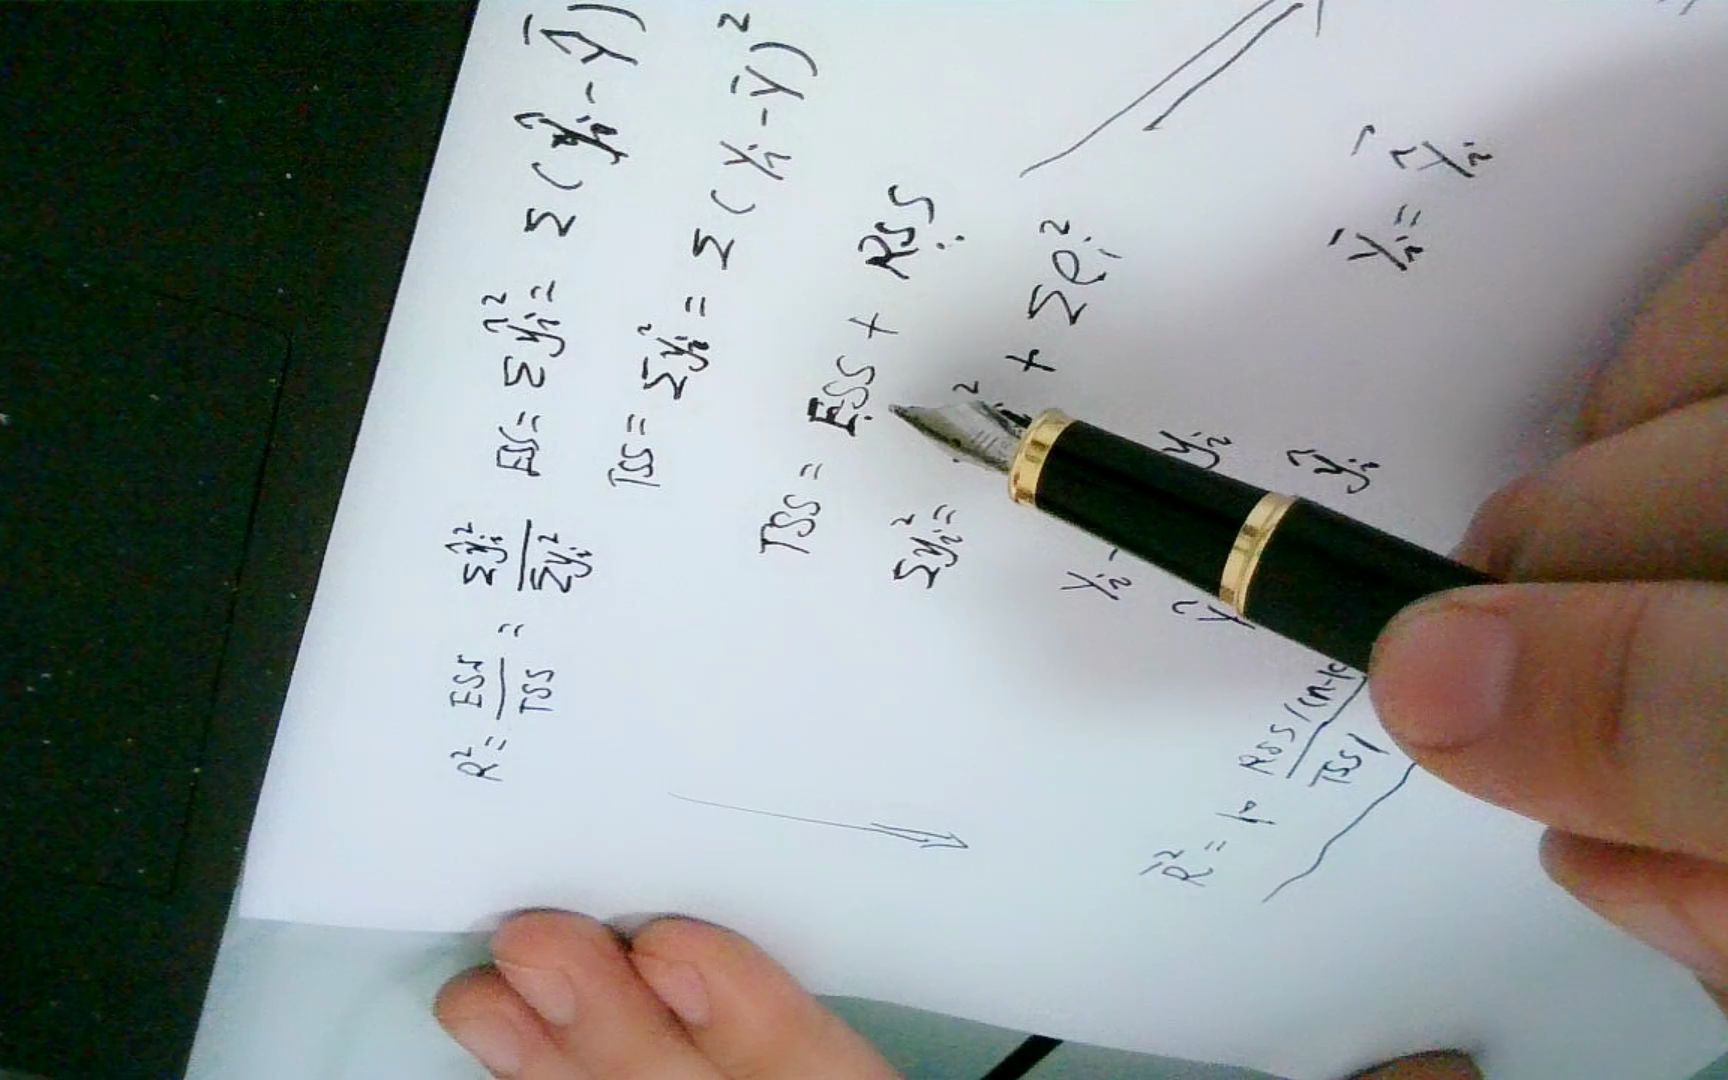 R² = ESS/TSS = Σŷᵢ²/Σyᵢ²
ESS = Σŷᵢ² = Σ(Ŷᵢ - Ȳ)
TSS = Σyᵢ² = Σ(Yᵢ - Ȳ)²
TSS = ESS + RSS
Σyᵢ² = ² + Σeᵢ²
Yᵢ - yᵢ
Ŷ ŷᵢ
R̄² = 1 - RSS/(n-k
TSS/